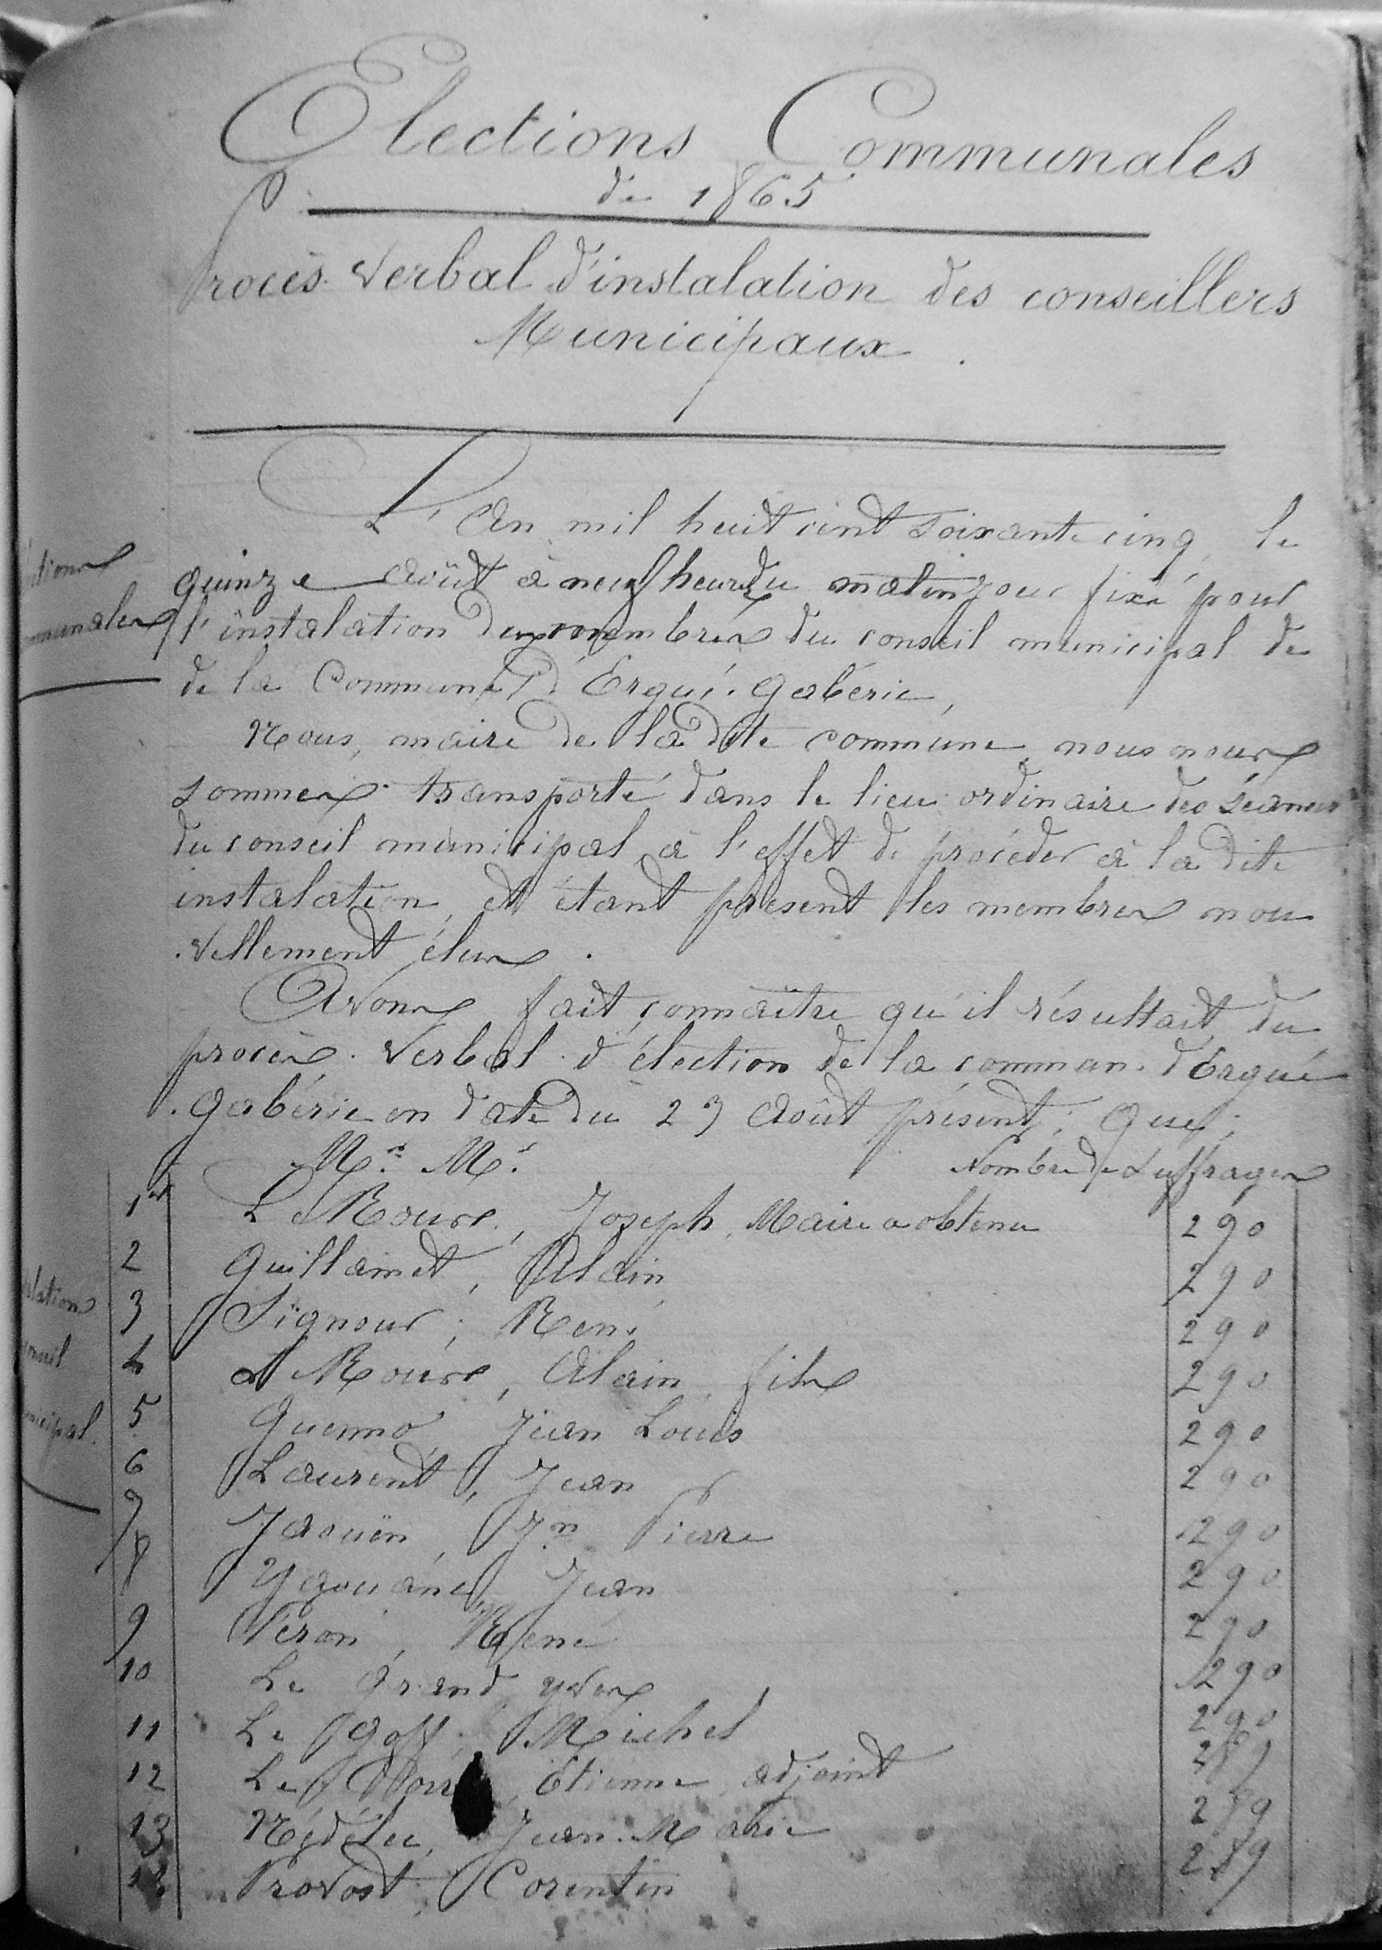 Elections Communales
de 1865
Procès-Verbal d'instalation des conseillers
Municipaux.
L'an mil huit cent soixante cinq, le
quinze août à neuf heures du matin jour fixé pour
l'instalation des membres du conseil municipal de
de la Commune d'Ergué-Gabéric,
Nous, maire de la dite commune nous nous
sommes transporté dans le lieu ordinaire des séances
du conseil municipal à l'effet de procéder à la dite
instalation, et étant présent les membres nou
vellement élus.
Avons fait connaître qu'il résultait du
procès-Verbal d'élection de la commun. d'Ergué
Gabéric en date du 23 août présent; que;
Mrs. Mrs. Nombre de suffrages
1er Le Roux, Joseph, Maire a obtenu 290
2 Guillamet, Alain 290
3 Signour, René 290
4 Alain, fils 290
5 Guenno Jean Louis 290
6 Laurent, Jean 290
7 Jaouën, Jn Pierre 290
8 Jean 290
9 Péron, René 290
10 Le Grand yves 290
11 Le Goff, Michel 290
12 Le Etienne, adjoint
13 Nédélec, Jean-Marie 289
Provost, Corentin 289